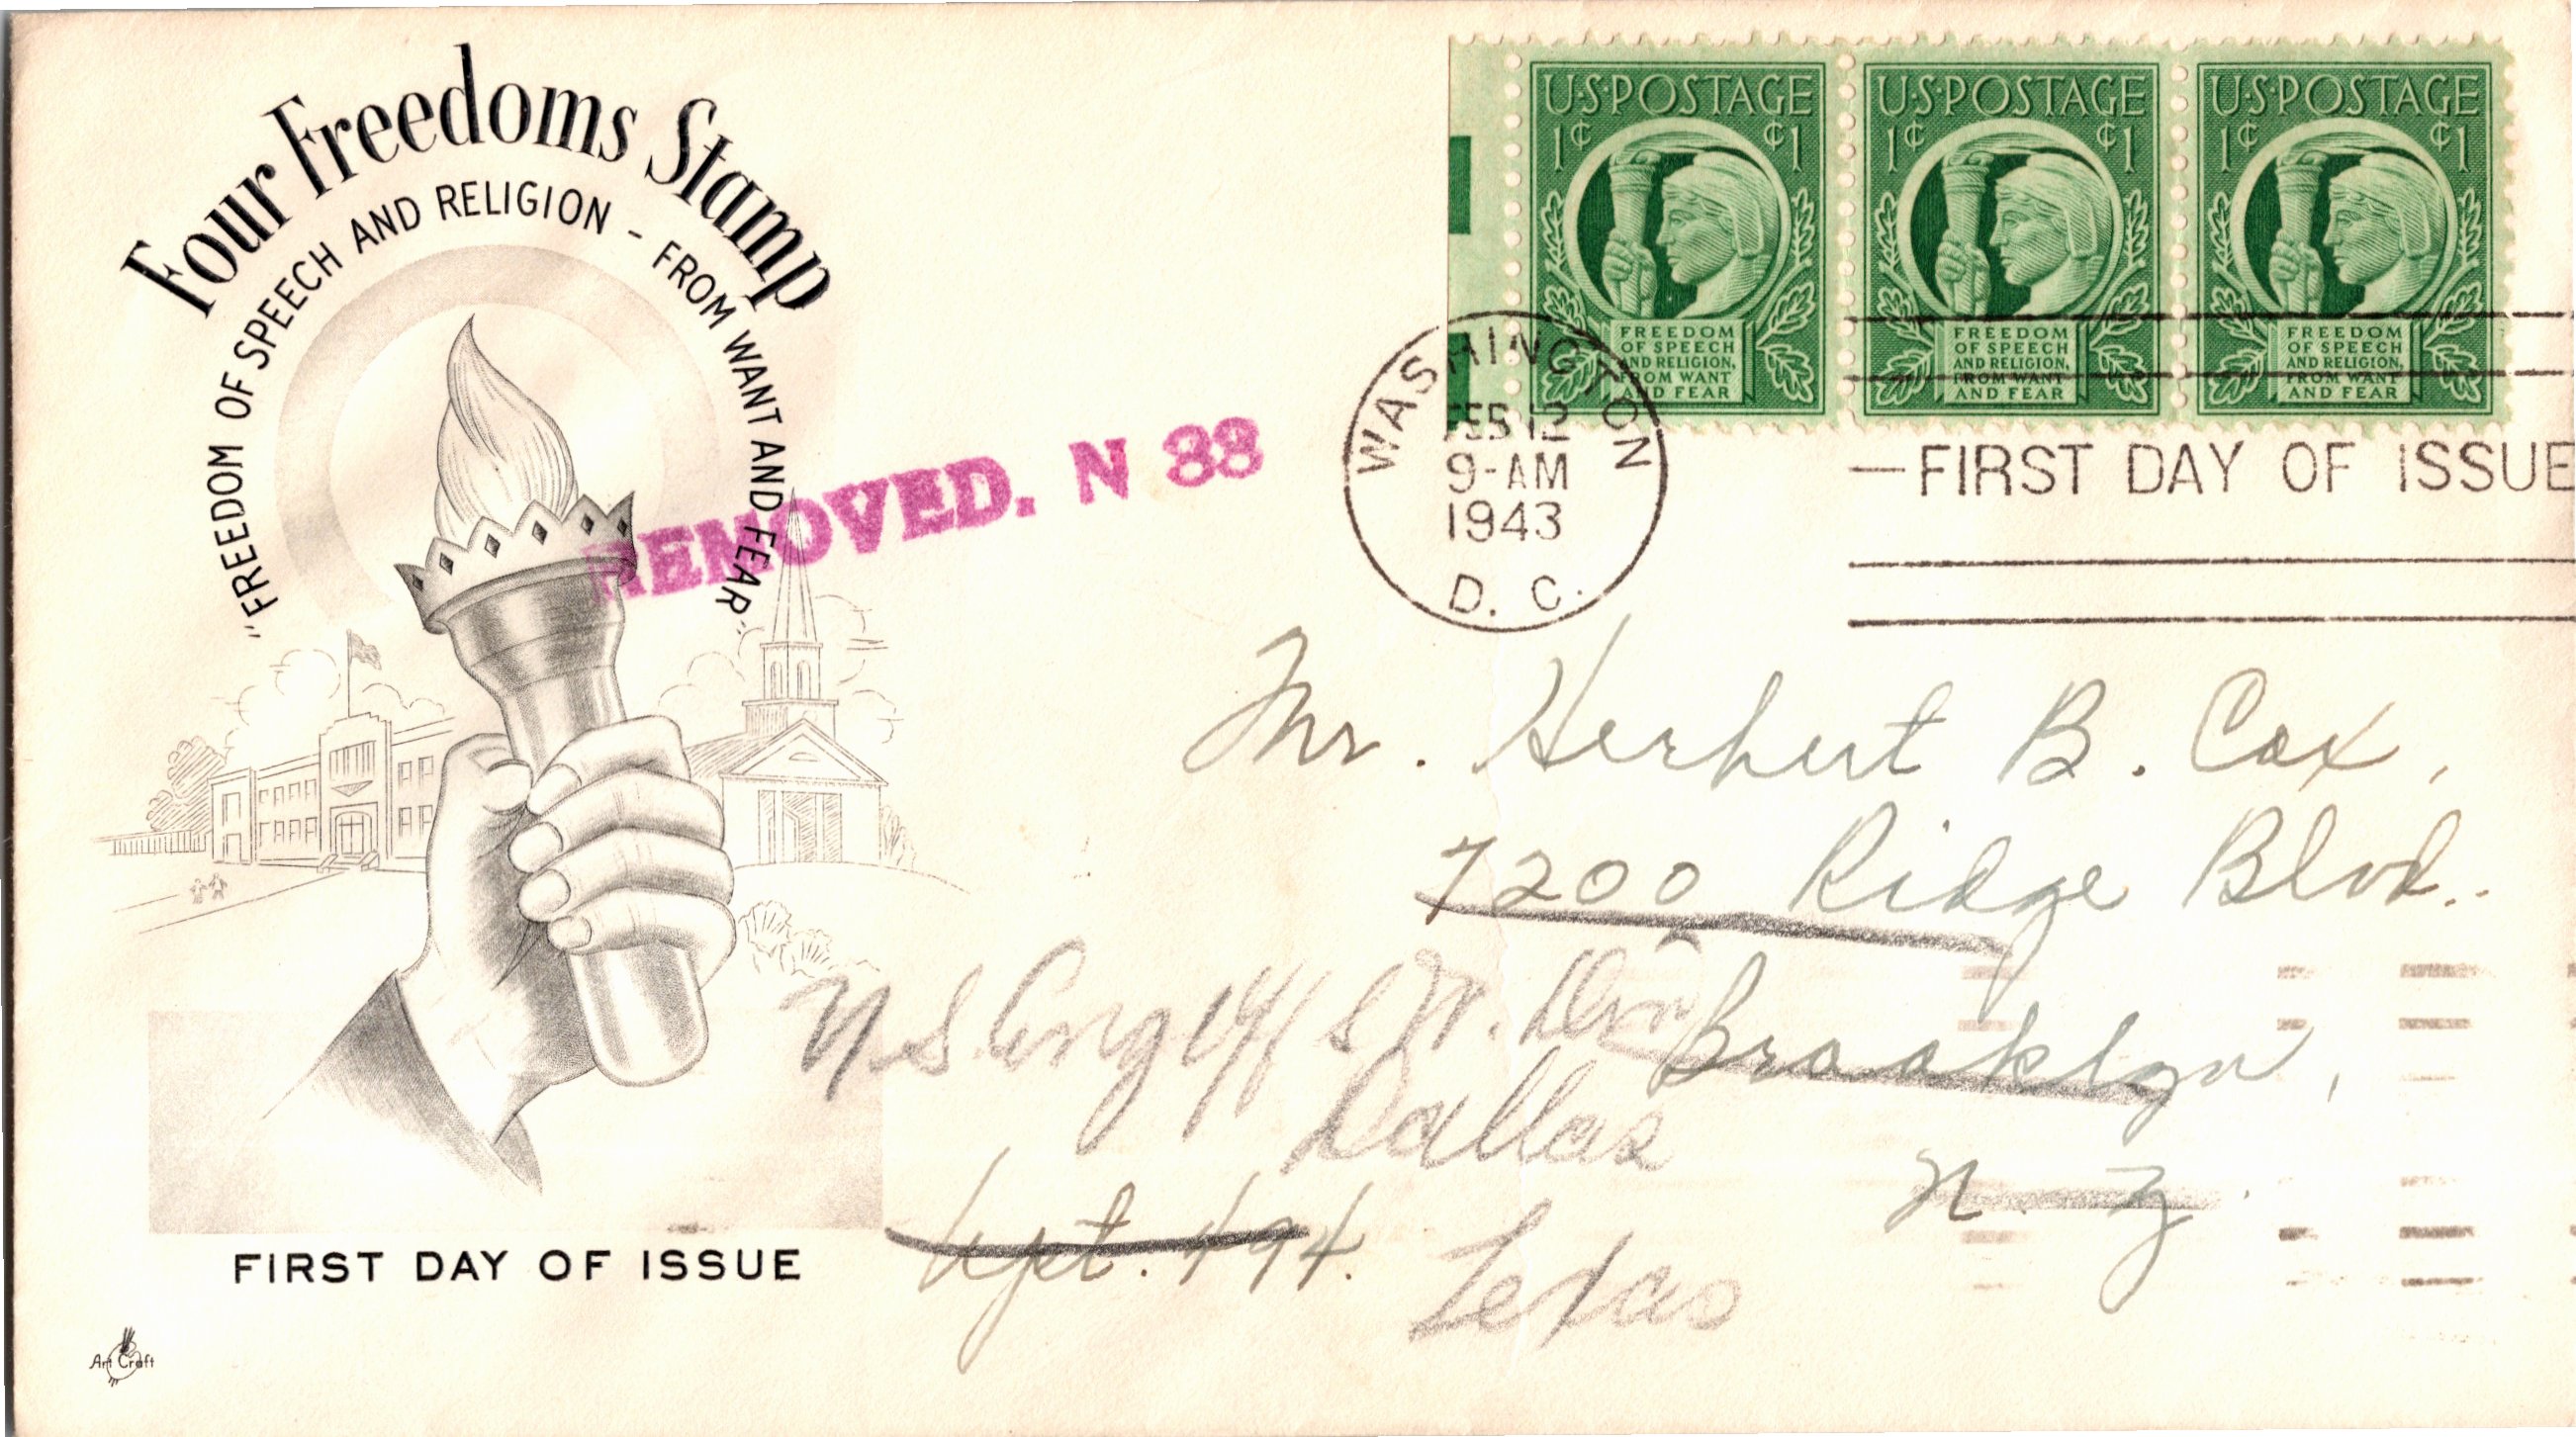 Four Freedoms Stamp
"FREEDOM OF SPEECH AND RELIGION - FROM WANT AND FEAR"
U·S·POSTAGE
1¢ ¢1
FREEDOM
OF SPEECH
AND RELIGION,
FROM WANT
AND FEAR
U·S·POSTAGE
1¢ ¢1
FREEDOM
OF SPEECH
AND RELIGION,
FROM WANT
AND FEAR
U·S·POSTAGE
1¢ ¢1
FREEDOM
OF SPEECH
AND RELIGION,
FROM WANT
AND FEAR
WASHINGTON
FEB 12
9-AM
1943
D. C.
—FIRST DAY OF ISSUE
REMOVED. N 33
Mr. Herbert B. Cox,
7200 Ridge Blvd.
Brooklyn,
N. Y.
U S Eng
Dallas
Texas
FIRST DAY OF ISSUE
Art Craft